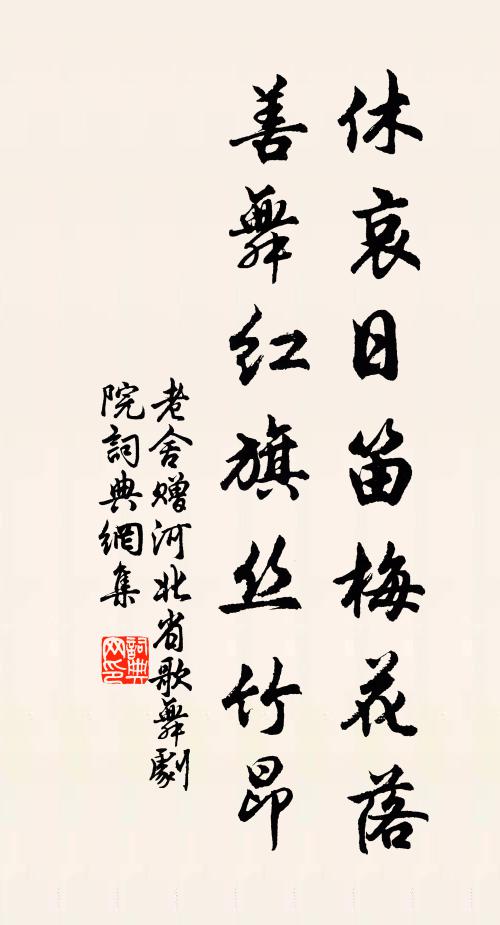 休哀日笛梅花落
善舞红旗丝竹昂
老舍赠河北省歌舞劇
院詞典網集
詞典
网印